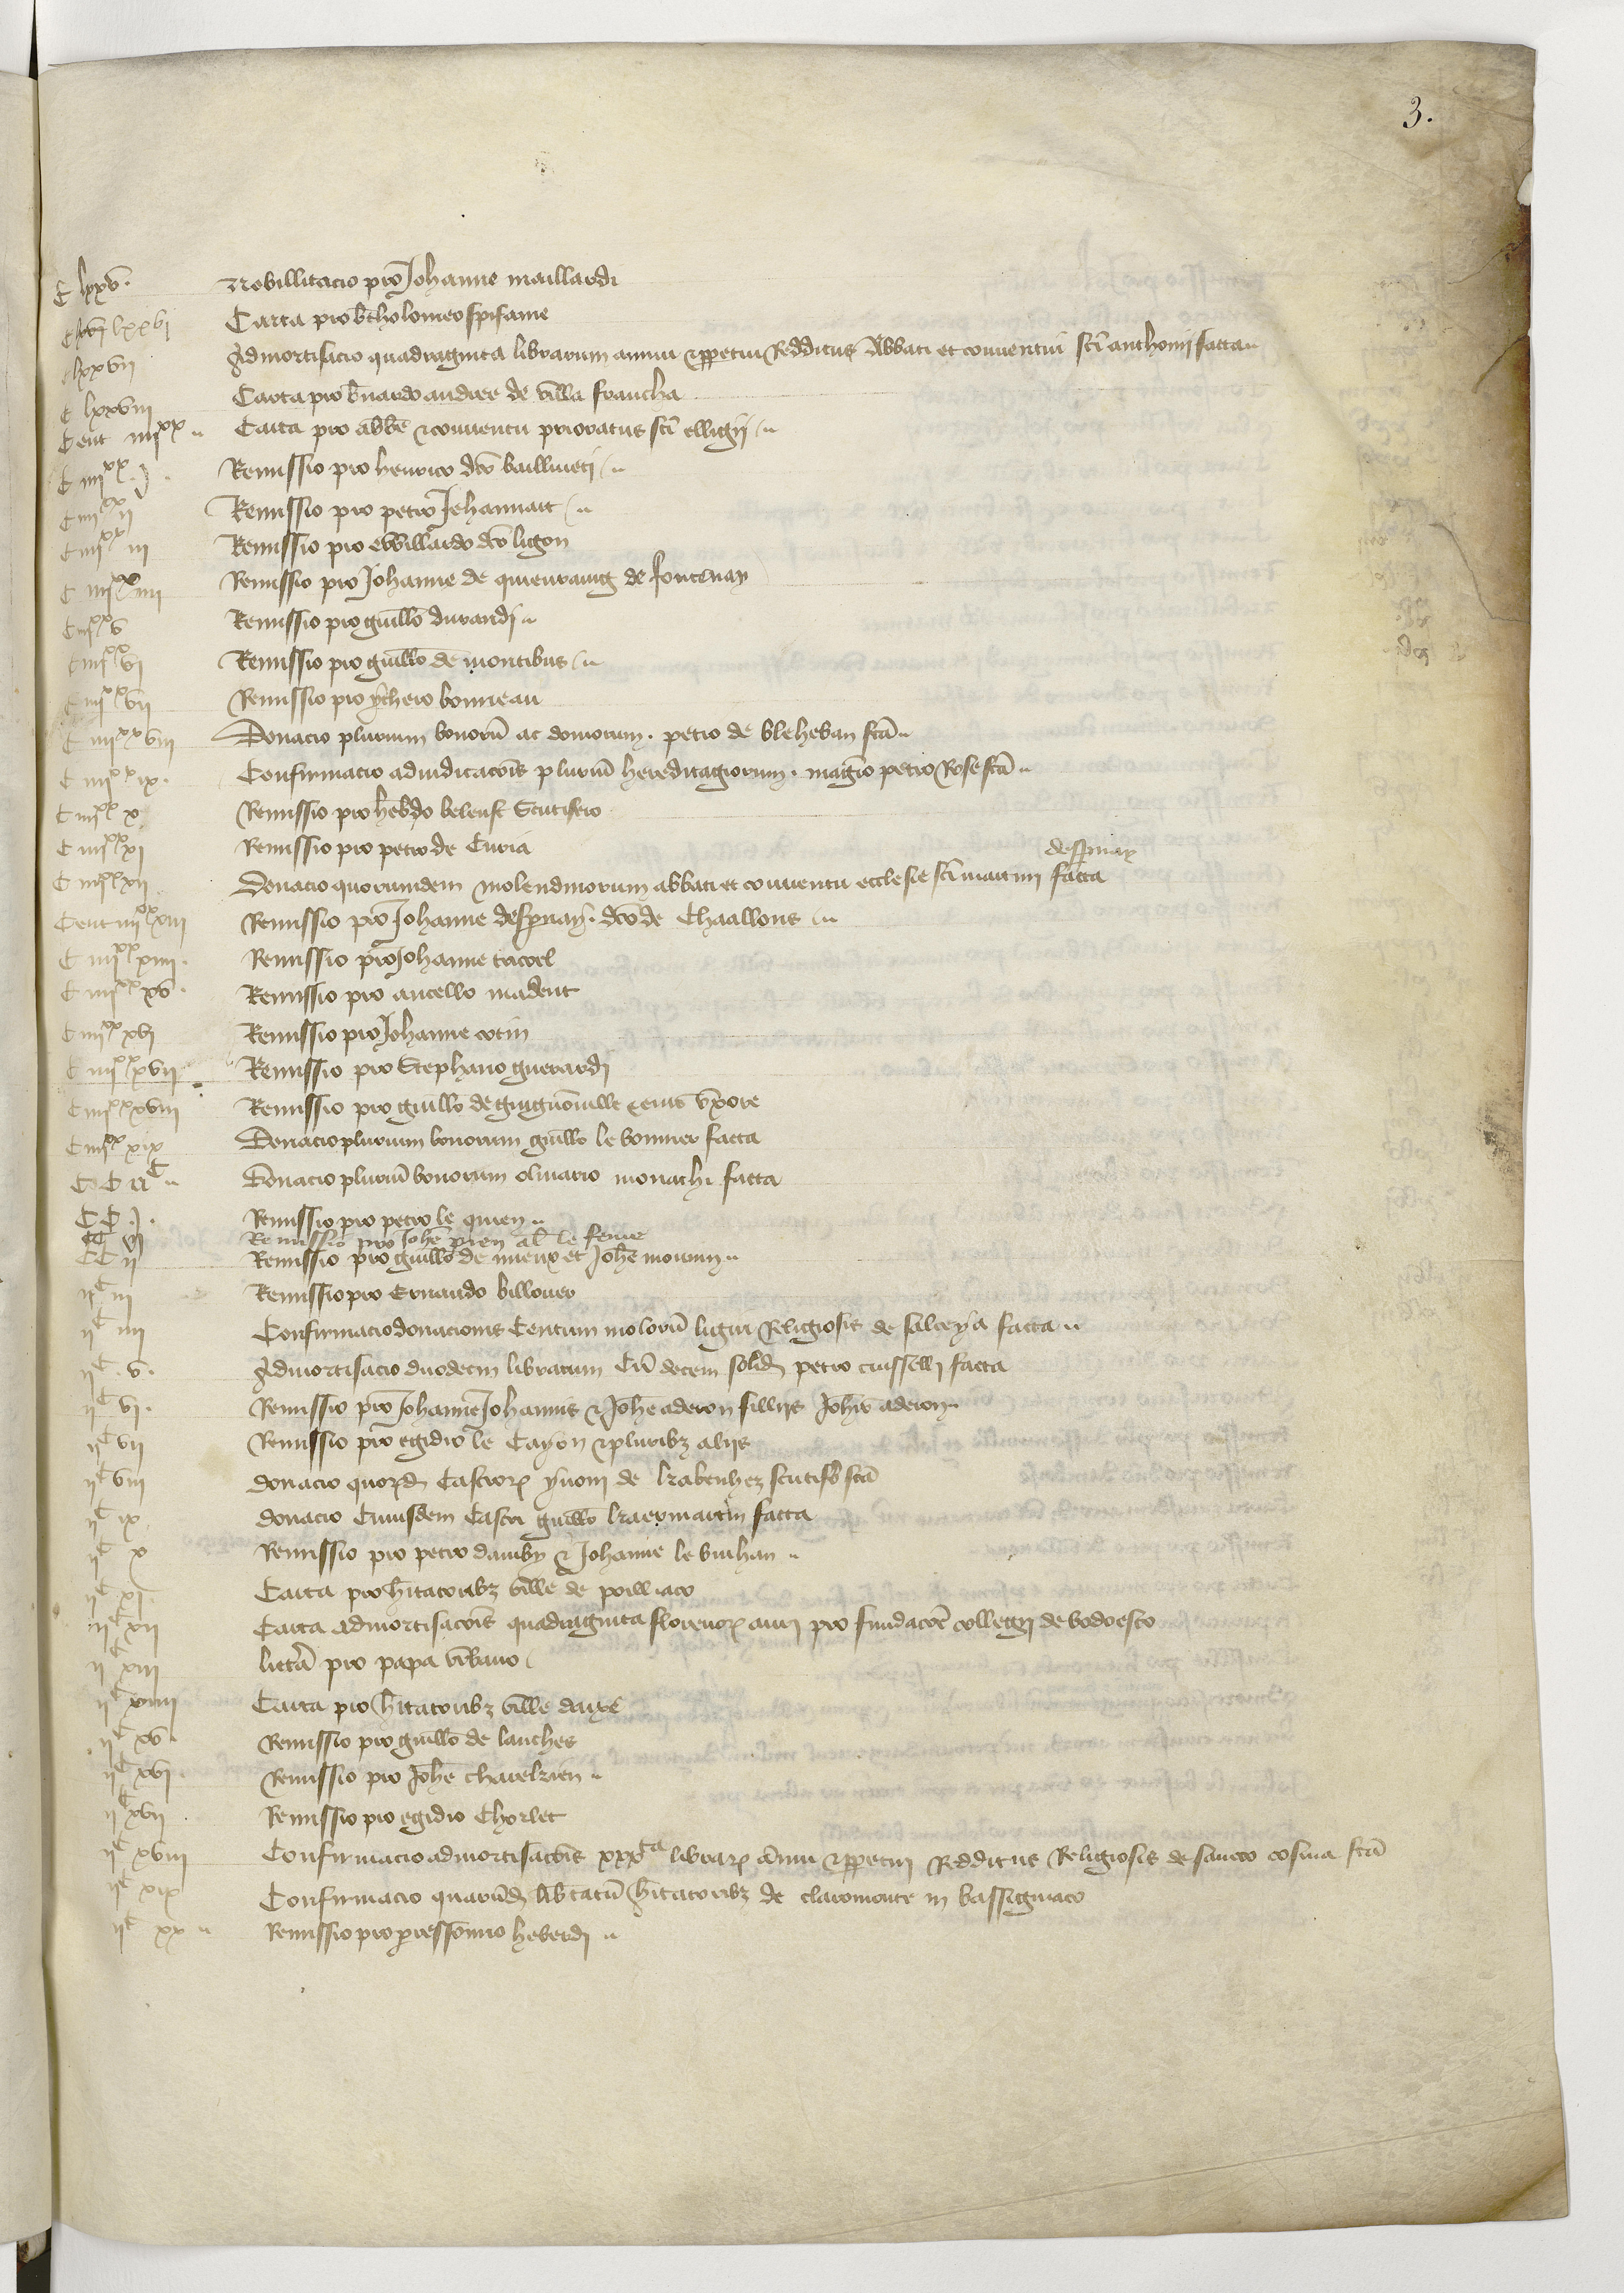 3.
C lxxv. Nobillitacio pro Johanne maillardi
C lxxvi Carta pro bthōlomeo spifame
C lxxvii Admortisacio quadraginta librarum annui et ppetui Redditus Abbati et conventui sci anthonii facta
C lxxviii Carta pro bnardo andree de villa francha
Cent iiijxx Carta pro abbe et conventu prioratus sci elligij
C iiijxx.j. Remissio pro henrico dco bailliveti
C iiijxx ij Remissio pro petro Jehannait
C iiijxx iii Remissio pro evvillardo dco ligon
C iiijxx iiii Remissio pro Johanne de quieuraing de fontenay
C iiijxx v Remissio pro guillo durandi
C iiijxx vi Remissio pro guillo de montibus
C iiijxx vii Remissio pro ythero bonneau
C iiijxx viii Donacio plurium bonorū ac domorum. petro de bleheban fcā
C iiijxx ix. Confirmacio adiudicacōis pluriū hereditagiorum. magro petro Rose fcā
C iiijxx x Remissio pro hebdo beleuse Scutifero
C iiijxx xi Remissio pro petro de Curia
despnay
C iiijxx xii Donacio quorumdem molendinorum abbati et conventu ecclesie sci martini facta
Cent iiijxx xiii Remissio pro Johanne despnay. dco de Chaallons
C iiijxx xiiii. Remissio pro Johanne tacoel
C iiijxx xv. Remissio pro ancello madeut
C iiijxx xvi Remissio pro Johanne cotin
C iiijxx xvii Remissio pro Stephano guerardi
C iiijxx xviii Remissio pro guillo de guignōville et eius vxore
C iiijxx xix Donacio plurium bonorum guillo le bonnier facta
CC iic Donacio pluriū bonorum olivario monachi facta
CC.j. Remissio pro petro le quien
CC ij Remissio pro Johe pien al le feme
CC ij Remissio pro guillo de nueux et Johe morini
iic iii Remissio pro Ernaudo billoner
iic iiii Confirmacio donacionis Centum molorū ligni Religiosis de salceya facta
iic .v. Admortisacio duodecim libratum Cū decem solid petro cuisselli facta
iic vi. Remissio pro Johanne Johannis et Johe aderon filliis Johis aderon
iic vii Remissio pro egidio le Cayon et pluribz aliis
iic viii donacio quord Castror yvoni de krabenhez scutifo fcā
iic ix donacio Cuiusdem Castri guillo kraermartin facta
iic x Remissio pro petro dambn et Johanne le bruhan
iic xi Carta pro hitatoribz ville de poilliaco
iic xii Carta admortisacōis quadraginta florenor auri pro fundacōe collegii de bodoesco
iic xiii littā pro papa urbano
iic xiiii Carta pro hitatoribz ville daixe
iic xv. Remissio pro guillo de lanches
iic xvi. Remissio pro Johe chatelrien
iic xvii Remissio pro egidio Chorlet
iic xviii Confirmacio admortisacōis xxxta librar annui et ppetui Redditus Religiosis de sancto cosma fcā
iic xix Confirmacio quarūd libtatū hitatoribz de claromonte in bassigniaco
iic xx Remissio pro pressonno heberdi